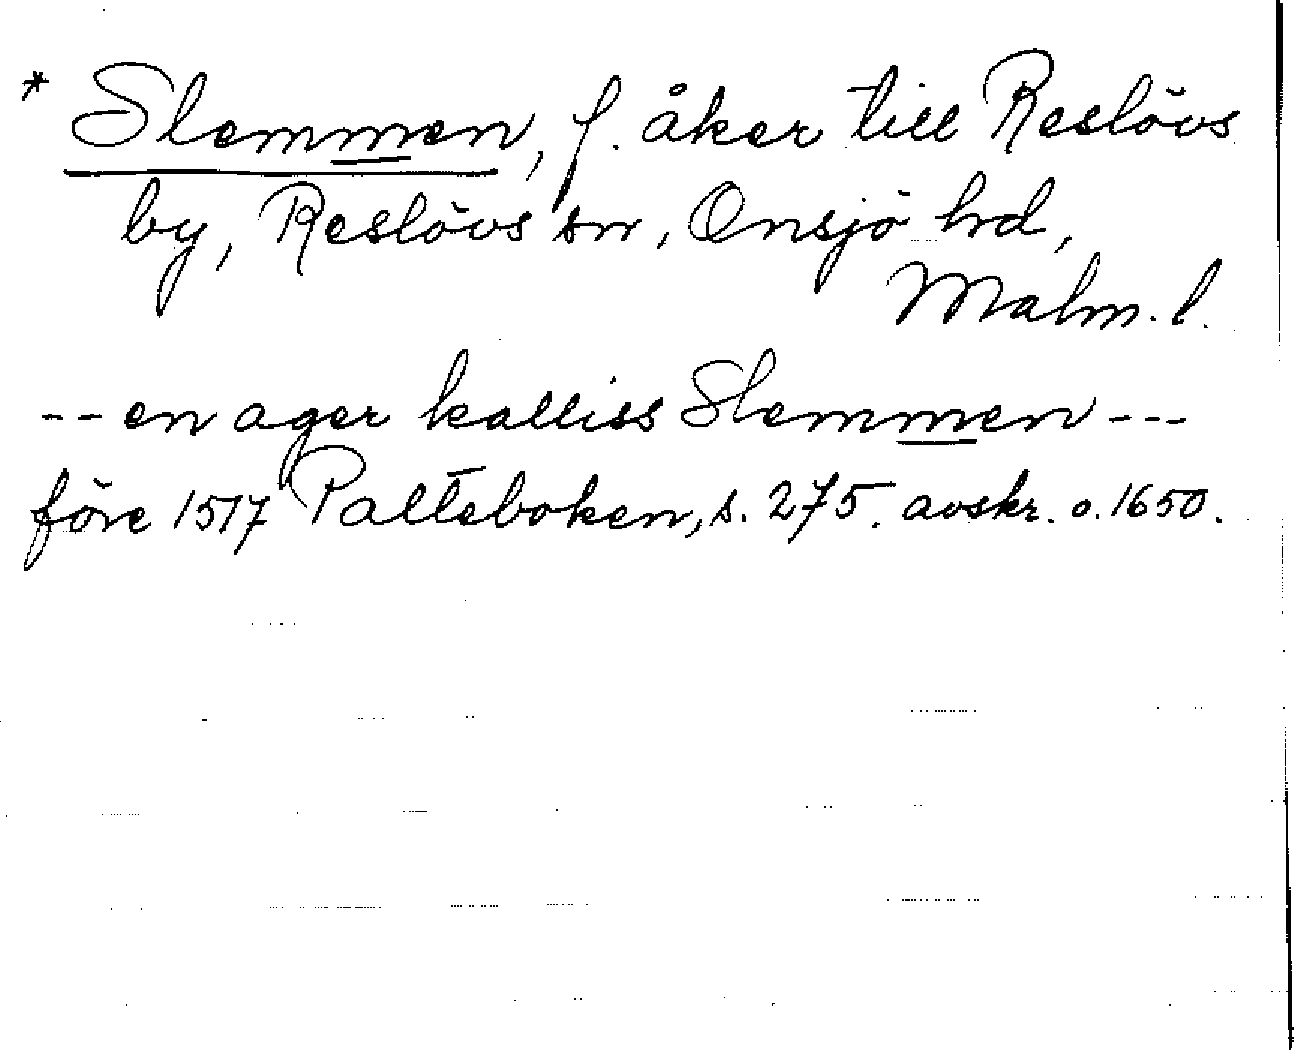 * Slemmen, f. åker till Reslövs
by, Reslövs sn, Onsjö hd,
Malm. l.
-- en ager kalliss Slemmen ---
före 1517 Palteboken, s. 275. avskr. o. 1650.